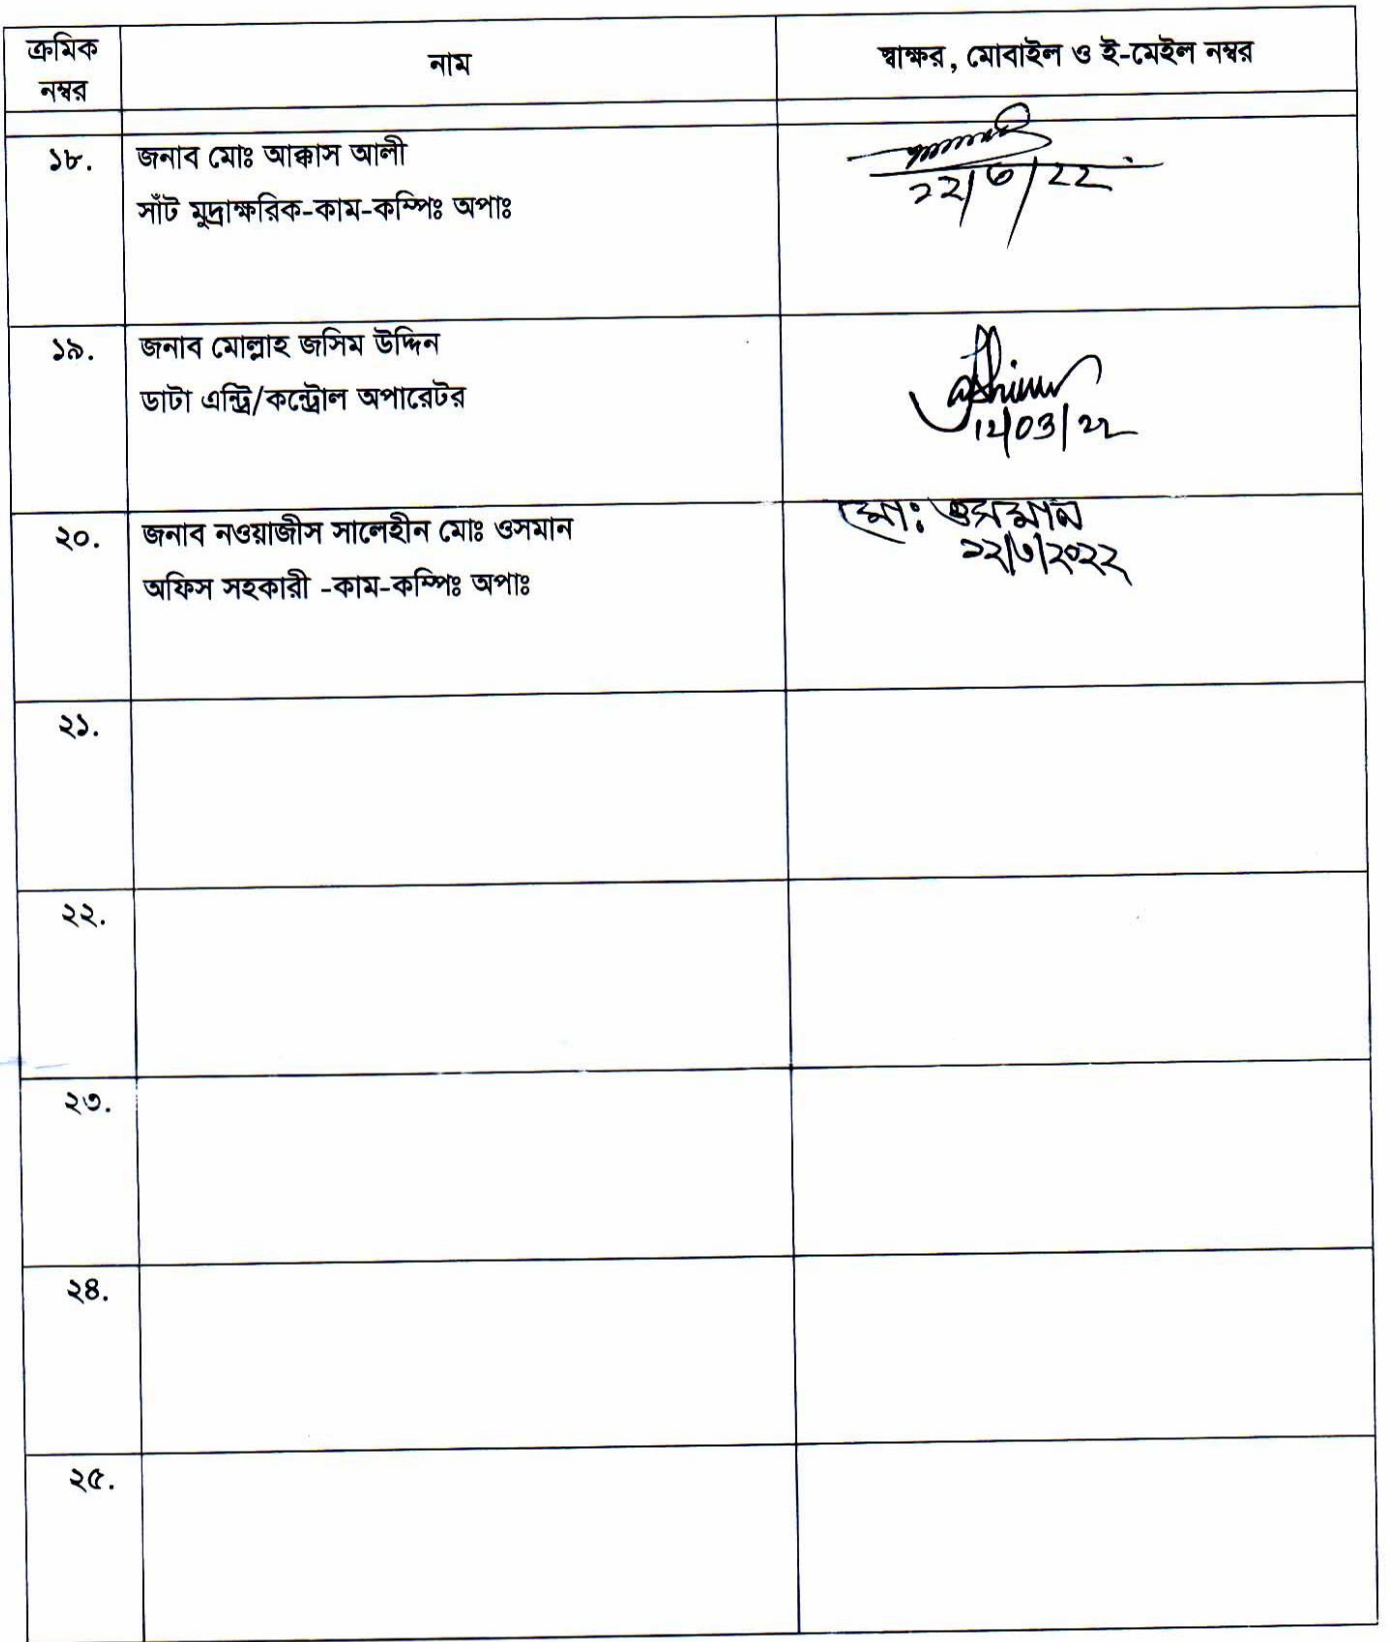 ক্রমিক
নম্বর
নাম
স্বাক্ষর, মোবাইল ও ই-মেইল নম্বর
১৮.
জনাব মোঃ আক্কাস আলী
সাঁট মুদ্রাক্ষরিক-কাম-কম্পিঃ অপাঃ
২২/৩/২২
১৯.
জনাব মোল্লাহ জসিম উদ্দিন
ডাটা এন্ট্রি/কন্ট্রোল অপারেটর
12/03/22
২০.
জনাব নওয়াজীস সালেহীন মোঃ ওসমান
অফিস সহকারী -কাম-কম্পিঃ অপাঃ
মোঃ ওসমান
২২/৩/২০২২
২১.
২২.
২৩.
২৪.
২৫.